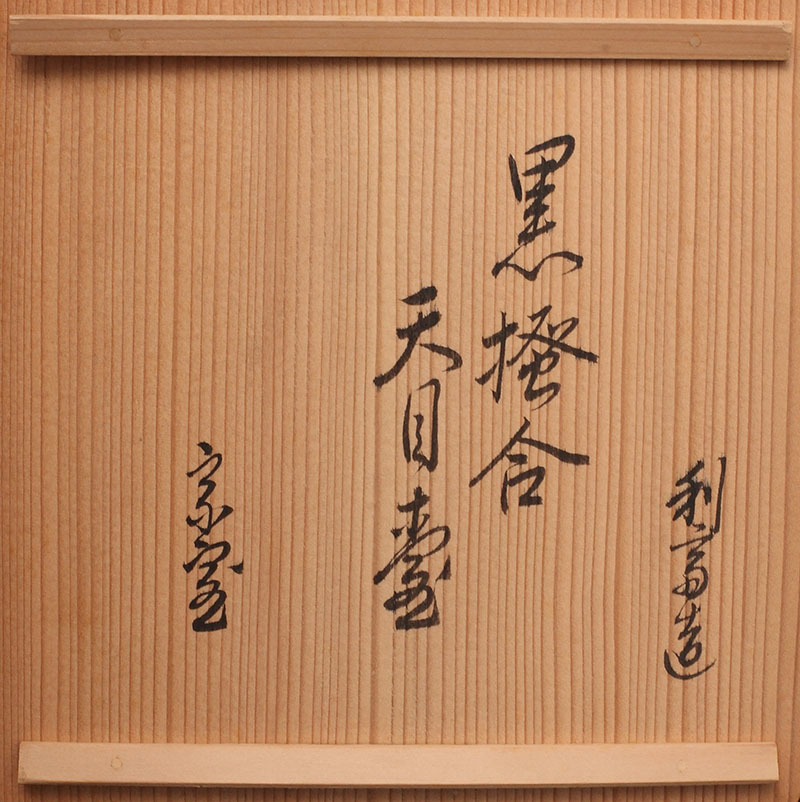 利斎造
黒掻合
天目臺
宗室